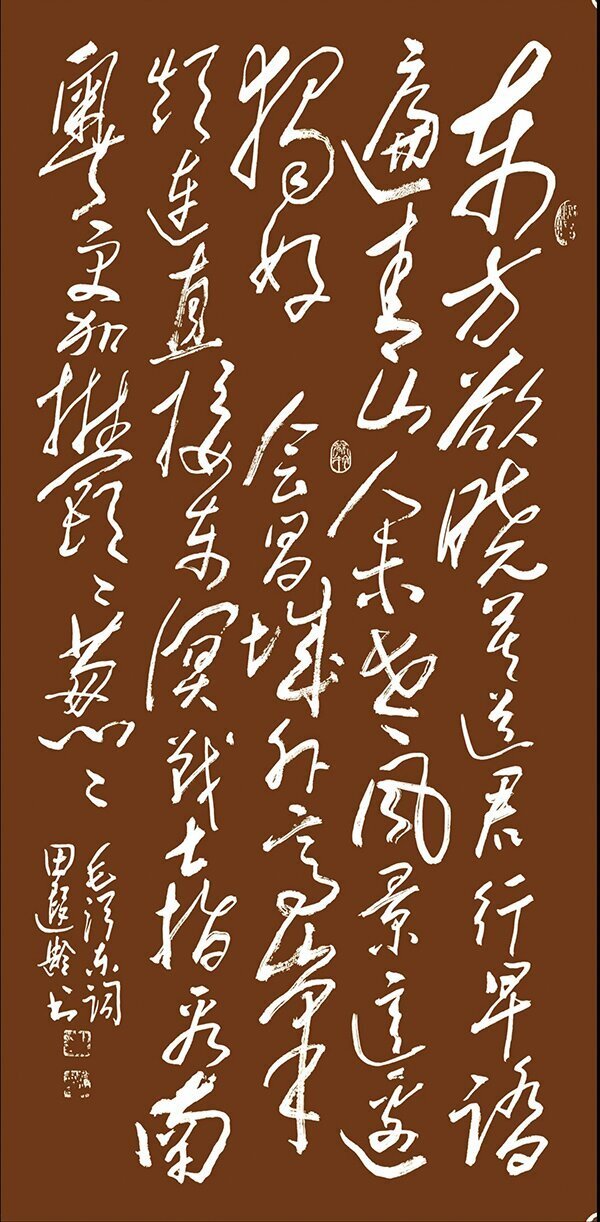 东方欲晓莫道君行早踏
遍青山人未老风景這邊
獨好 会昌城外高峯
颠连直接东溟战士指看南
粤更加欝〻葱〻
毛泽东词
田遐龄书